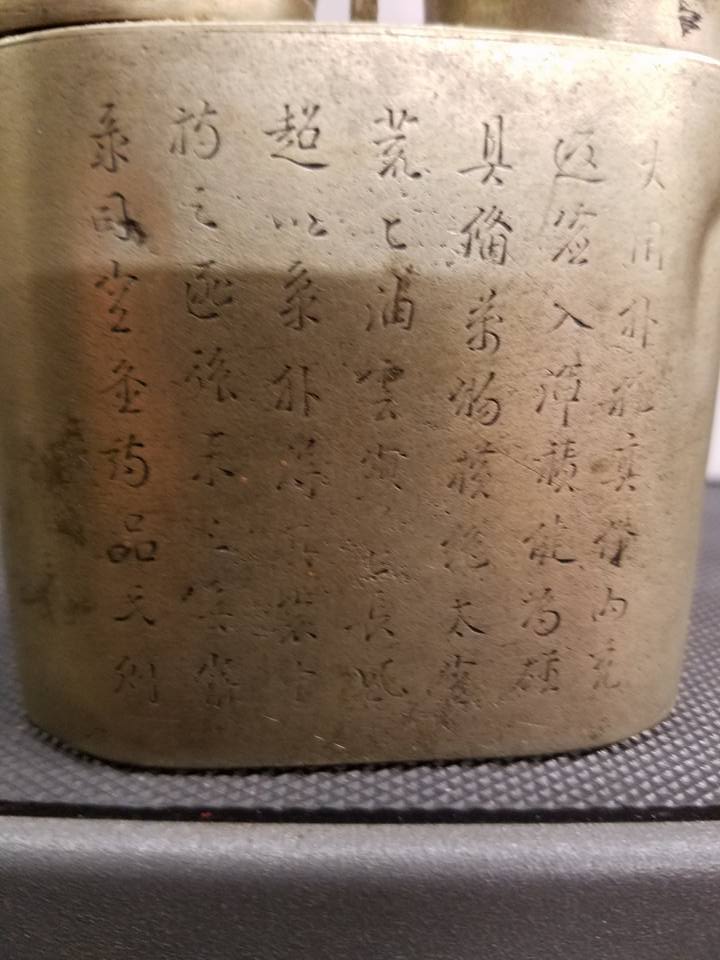 大用外腓真體内充
返虛入渾積健為雄
具備萬物橫絕太空
荒〻油雲寥〻長風
超以象外得其環中
持之匪強來之無窮
录司空圖詩品則